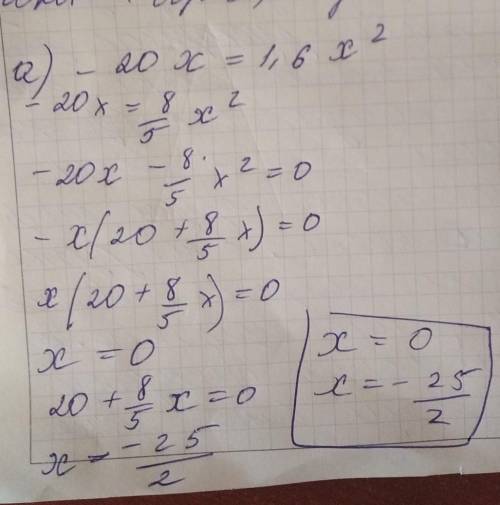 а) - 20 x = 1,6 x²
- 20x = 8/5 x²
- 20x - 8/5 x² = 0
- x(20 + 8/5 x) = 0
x(20 + 8/5 x) = 0
x = 0
20 + 8/5 x = 0
x = -25/2
x = 0
x = - 25/2